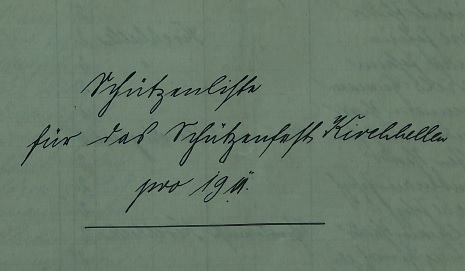 Schützenliste
für das Schützenfest Kirchhellen
pro 1911.